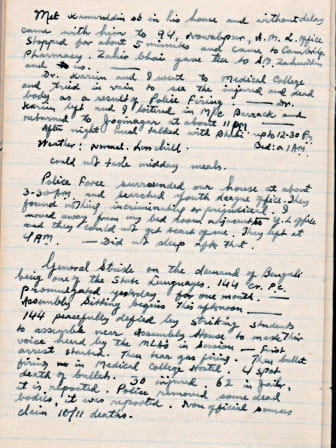 Met Kamruddin sb in his house and without delay
came with him to 94, Nowabpur, A.M.L. Office
Stopped for about 5 minutes and came to Cambridge
Pharmacy. Zahir bhai gave tea to Dr, Zahuruddin
and us.
Dr. Karim and I went to Medical College
and tried in vain to see the injured and dead
body as a result of Police Firing. — Dr.
Karim left and I loitered in M/C Barrack and
returned to Joginagar at about 11 P.M.
After night meal talked with Bhabi upto 12-30 P.M.
Weather: Normal. Less chill. Bed: at 1 A.M.
could not take midday meals.
Police Force surrounded our house at about
3-30 A.M. and searched youth league office. They
found nothing incriminating or prejudicial. I
moved away from my bed room adjacent to Y.L. office
and they could not get scent of me. They left at
4 A.M. — Did not sleep after that.
General Strike on the demand of Bengali
being one of the State Languages. 144 Cr. P.C.
promulgated yesterday for one month. —
Assembly Sitting begins this afternoon —
144 peacefully defied by striking students
to assemble near Assembly House to make their
voice heard by the MLAs in Session — First
arrest started. Then tear gas firing. Then bullet
firing in Medical College Hostel. 4 spot
death of bullets. 30 injured. 62 in jail,
it is reported. Police removed some dead
bodies, it was reported. Non official sources
claim 10/11 deaths.